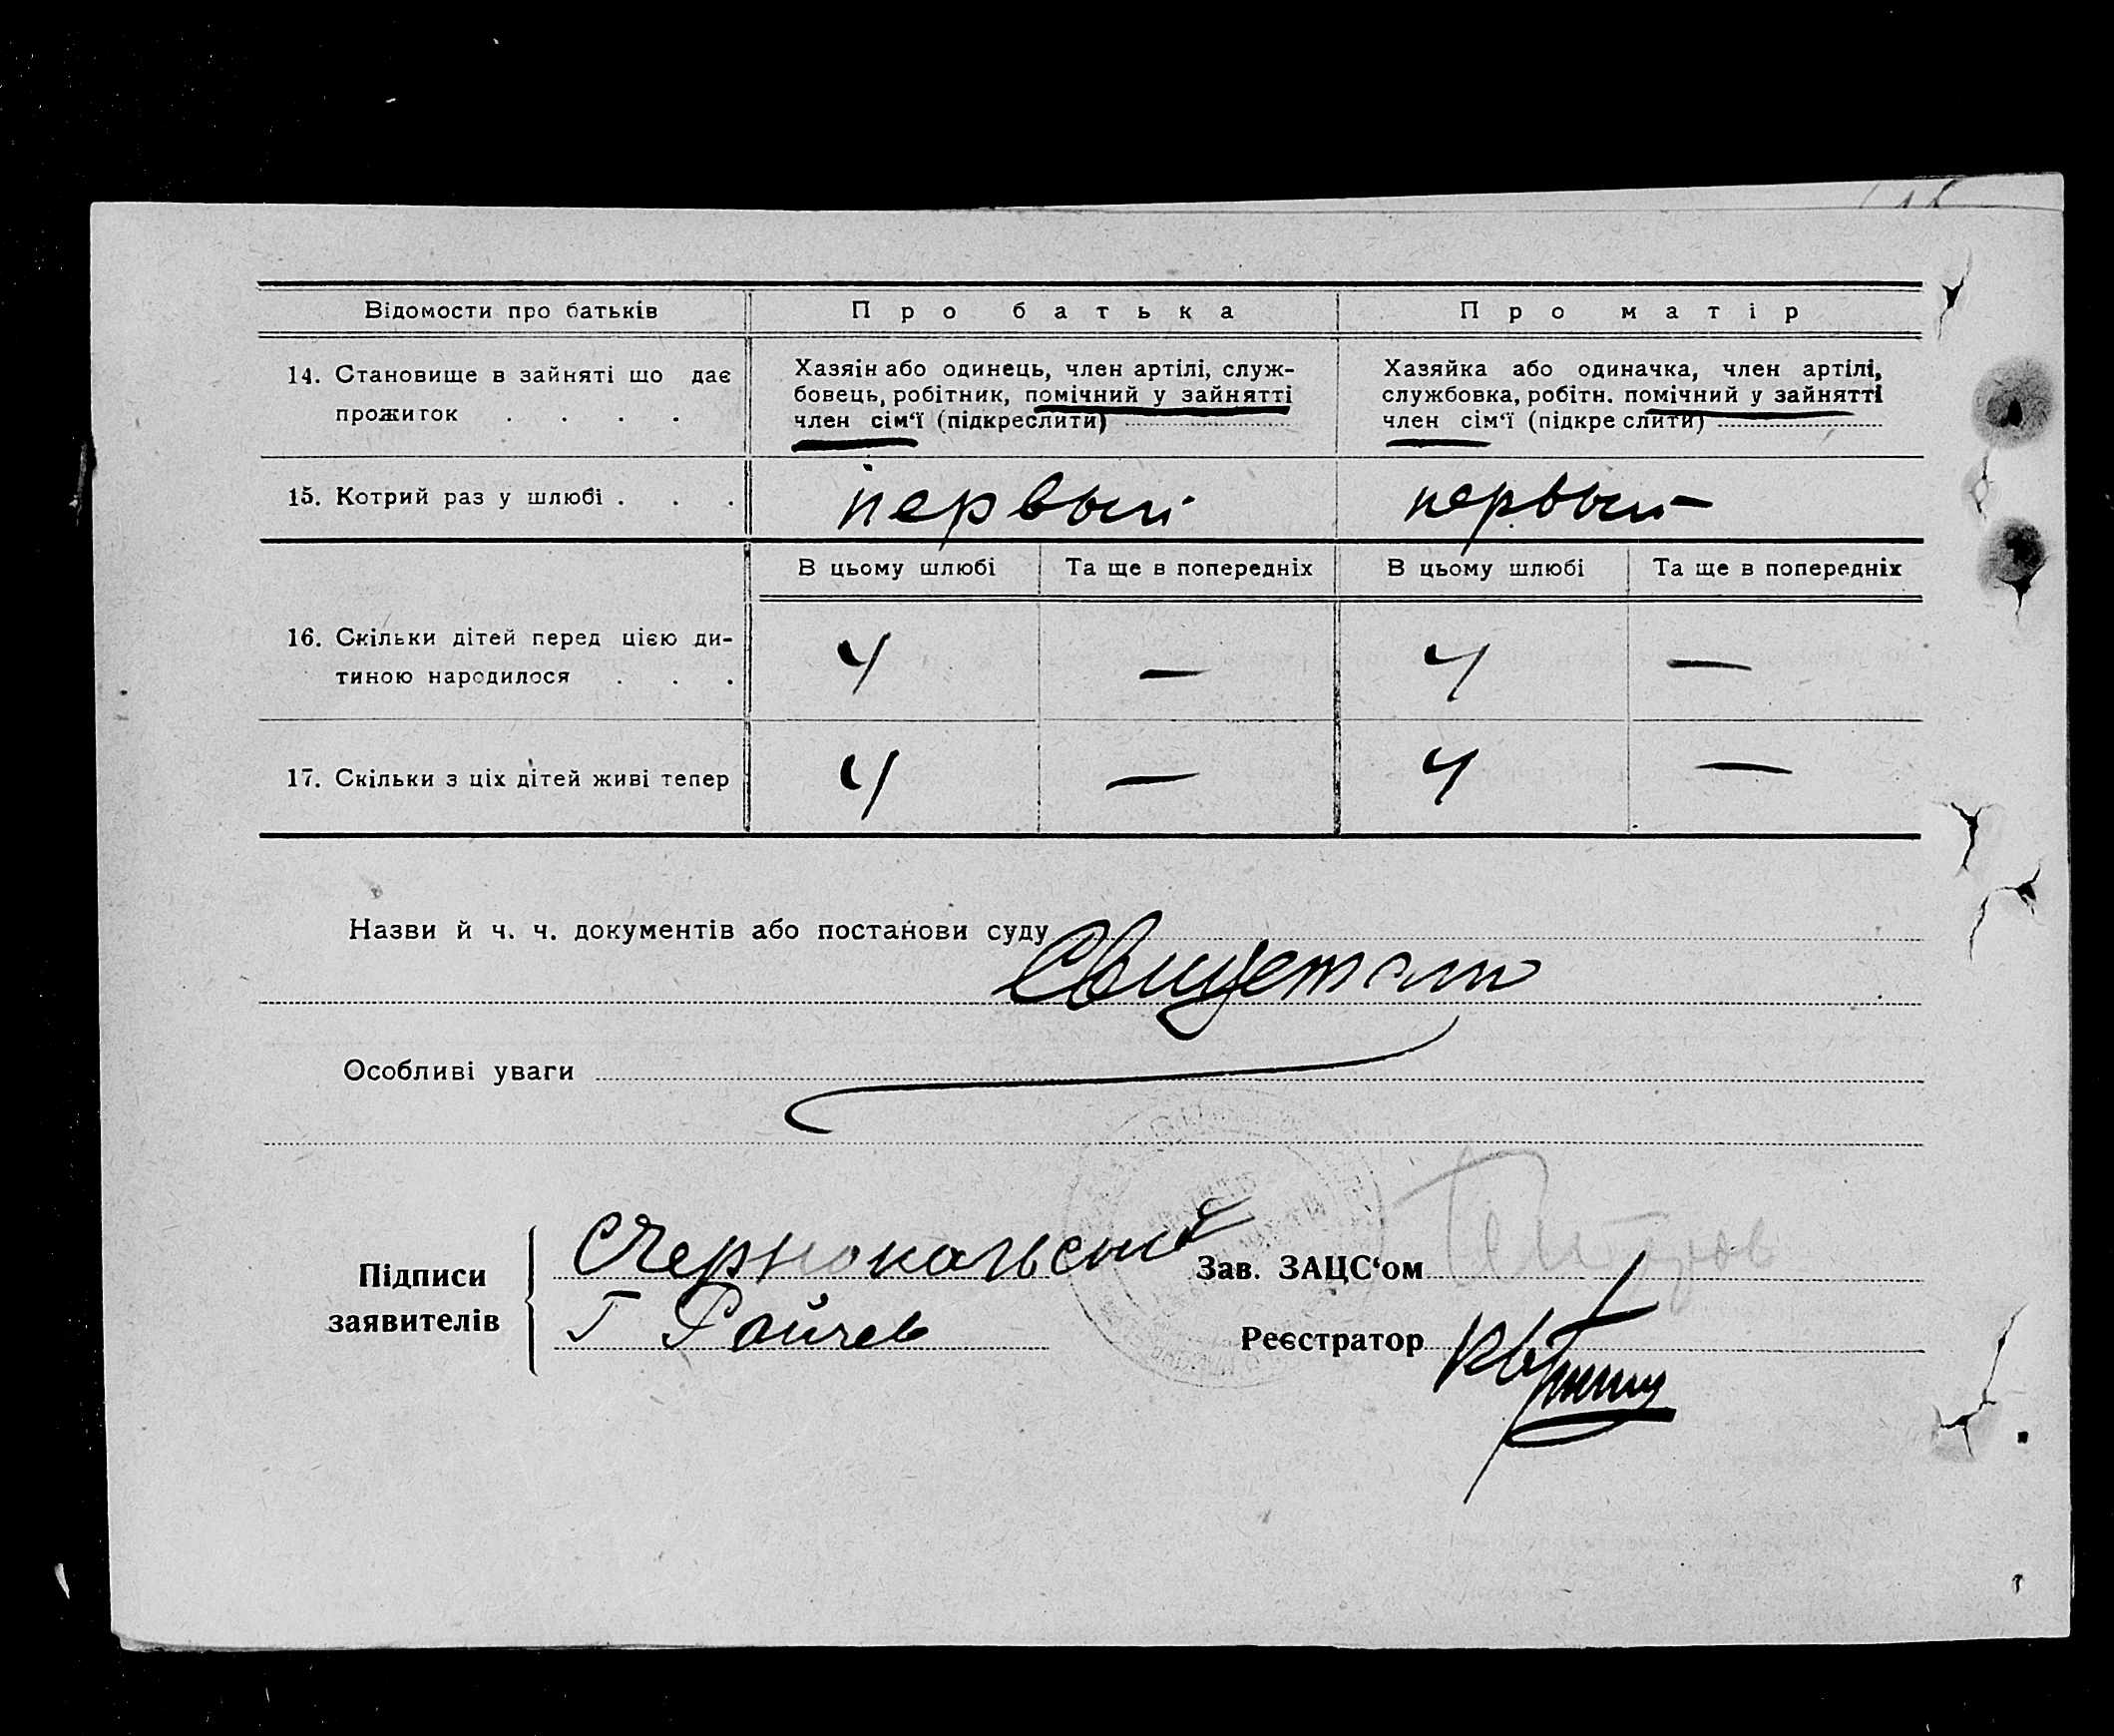 Відомости про батьків
Про батька
Про матір
14. Становище в зайняті що дає
прожиток . . . .
Хазяін або одинець, член артілі, служ-
бовець, робітник, помічний у зайнятті
член сім‘ї (підкреслити)
Хазяйка або одиначка, член артілі,
службовка, робітн. помічний у зайнятті
член сім‘ї (підкре слити)
15. Котрий раз у шлюбі . . .
первый
первый
В цьому шлюбі
Та ще в попередніх
В цьому шлюбі
Та ще в попередніх
16. Скільки дітей перед цією ди-
тиною народилося . . .
4
—
4
—
17. Скільки з ціх дітей живі тепер
4
—
4
—
Назви й ч. ч. документів або постанови суду
Свидетели
Особливі уваги
Підписи
заявителів
Г Райчев
Зав. ЗАЦС‘ом
Реєстратор